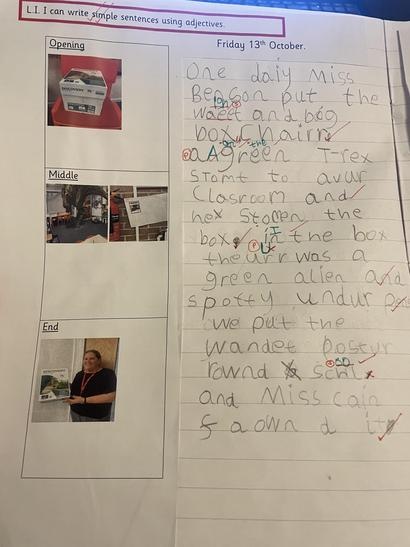 L.I. I can write simple sentences using adjectives.
Opening
Friday 13th October.
One daiy Miss
Benson put the
and big
box chair
A green T-rex
stomt to avur
Clasroom and
nex stolen the
box. In the box
theurr was a
green alien and
spotty undur
we put the
wandet postur
rownd
and Miss Cain
f a own d it
Middle
End